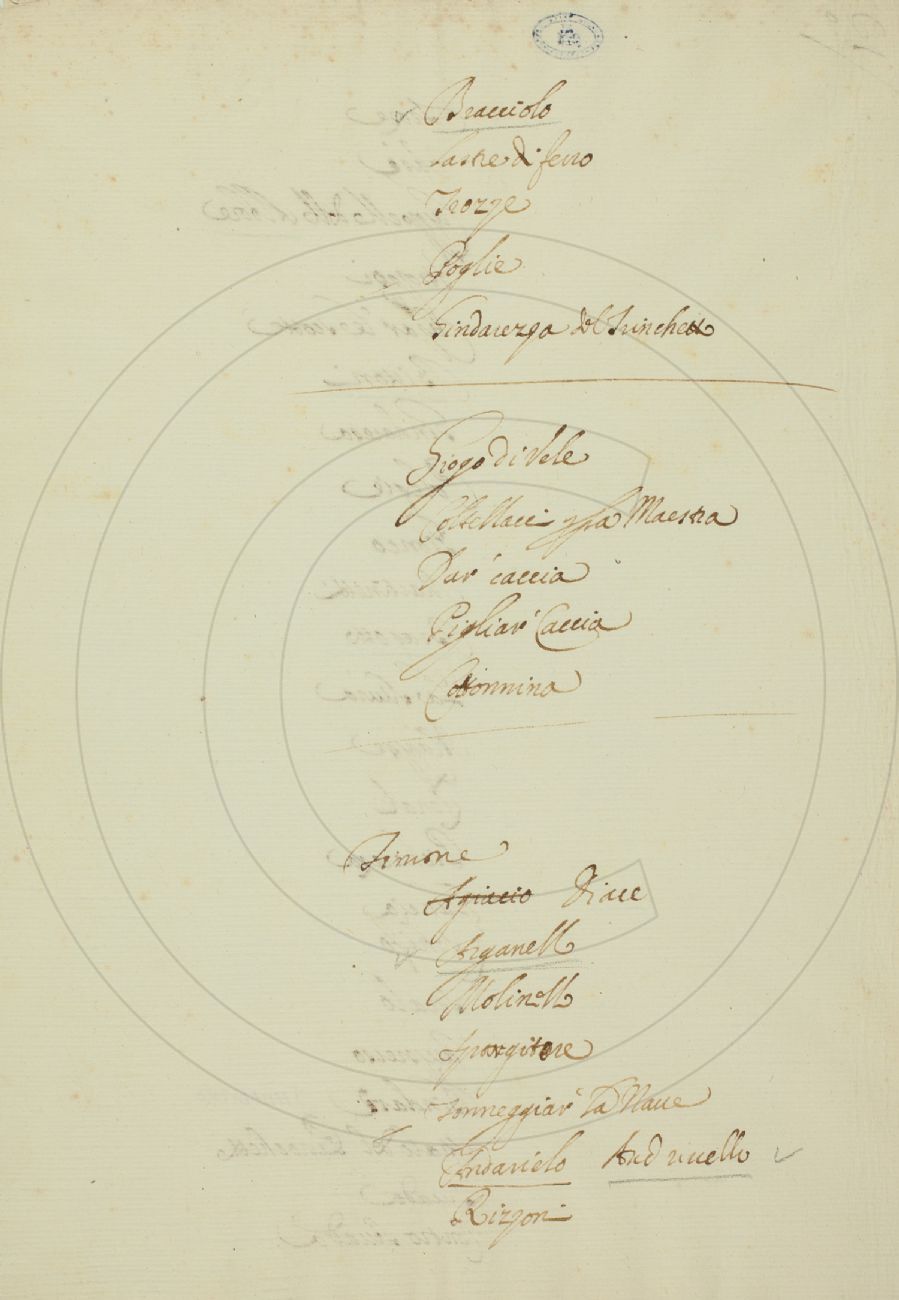 Bracciolo
Lastre di ferro
Trozze
Poglie
Sindarezza del Trinchetto
Giogo di Vele
Coltellacci per la Maestra
Dar' caccia
Pigliar' Caccia
Cottonnina
Timone
Agiaccio Diacc
Arganello
Molinello
Spargitore
Tonneggiar' la Naue
Andarielo Andriuello
Rizzoni